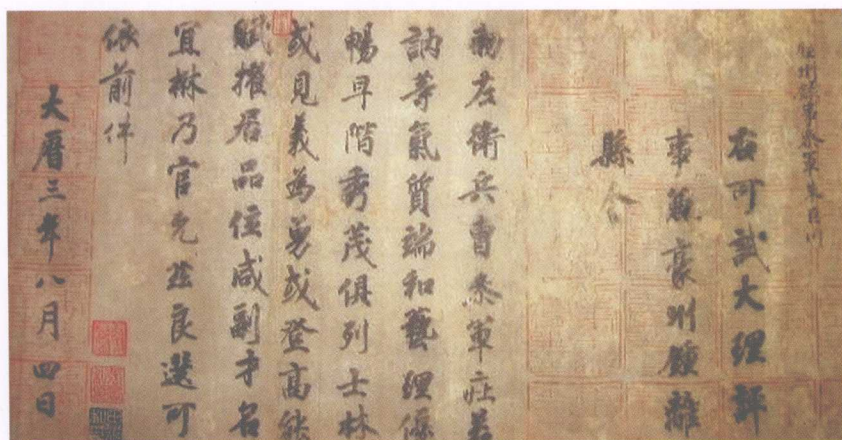 睦州錄事參軍朱巨川
右可試大理評
事兼豪州鍾離
縣令
勑左衛兵曹參軍莊若
訥等氣質端和藝理優
暢早階秀茂俱列士林
或見義為勇或登高能
賦擢居品位咸副才名
宜楙乃官允茲良選可
依前件
大曆三年八月四日